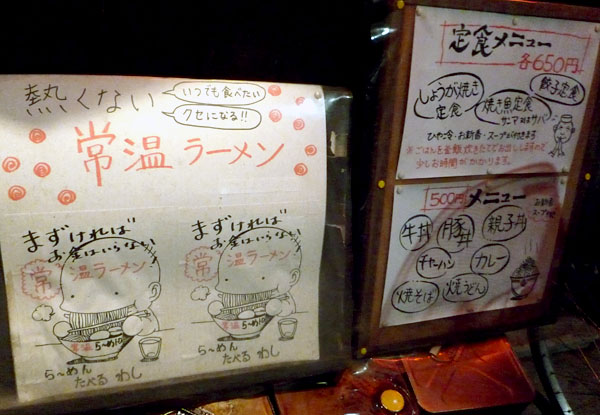 熱くない
いつでも食べたい
クセになる!!
常温ラーメン
まずければ
お金はいらない
常温ラーメン
常温ら〜めん
ら〜めん
たべるわし
まずければ
お金はいらない
常温ラーメン
常温ら〜めん
ら〜めん
たべるわし
定食メニュー
各650円
しょうが焼き
定食
焼き魚定食
餃子定食
ひややっこ・お新香・スープが付きます
少しお時間がかかります。
500円メニュー
お新香
牛丼
豚丼
親子丼
チャーハン
カレー
焼そば
焼うどん